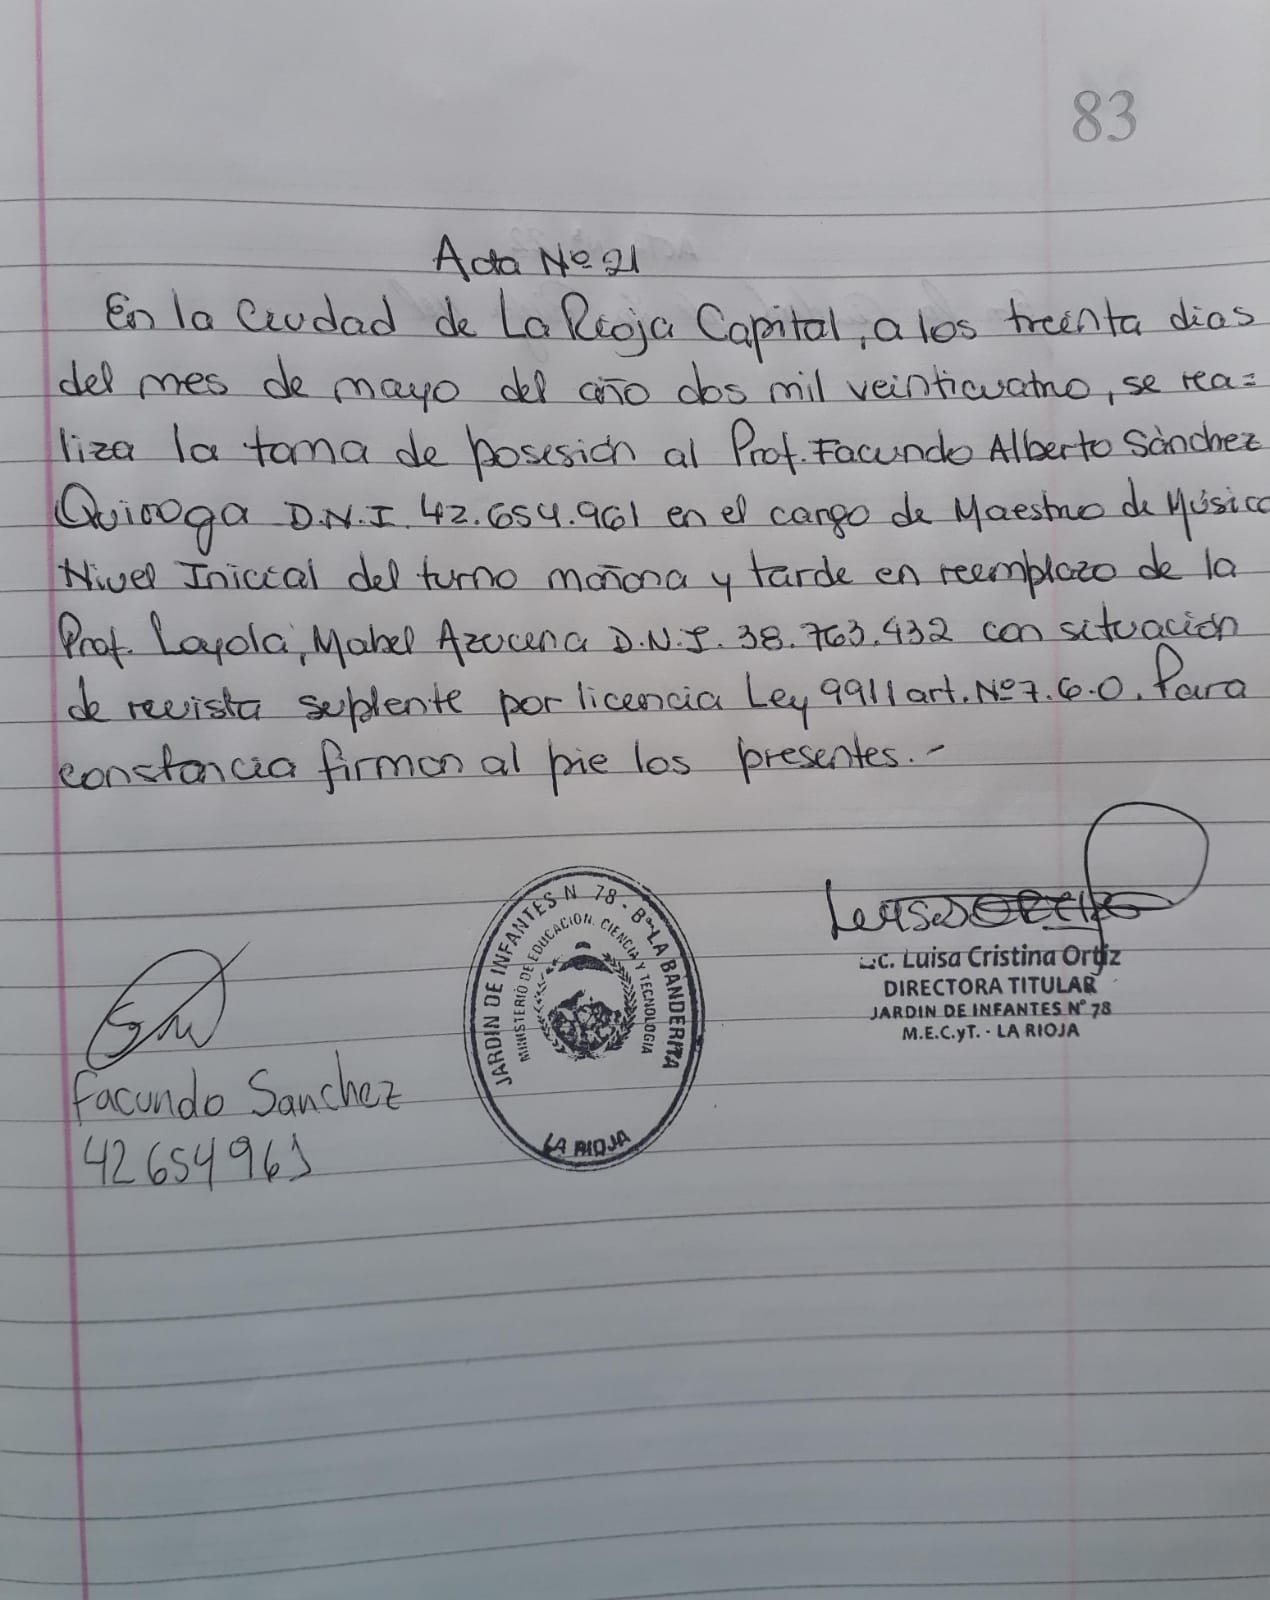 83
Acta Nº 21
En la Ciudad de La Rioja Capital, a los treinta dias
del mes de mayo del año dos mil veinticuatro, se rea=
liza la toma de posesión al Prof. Facundo Alberto Sánchez
Quiroga D.N.I. 42.654.961 en el cargo de Maestro de Música
Nivel Inicial del turno mañana y tarde en reemplazo de la
Prof. Loyola, Mabel Azucena D.N.I. 38.763.432 con situación
de revista suplente por licencia Ley 9911 art. Nº 7.6.0. Para
constancia firman al pie los presentes.-
JARDIN DE INFANTES N 78 - Bº LA BANDERITA
MINISTERIO DE EDUCACION, CIENCIA Y TECNOLOGIA
LA RIOJA
Lic. Luisa Cristina Ortiz
DIRECTORA TITULAR
JARDIN DE INFANTES Nº 78
M.E.C.yT. - LA RIOJA
Facundo Sanchez
42654961